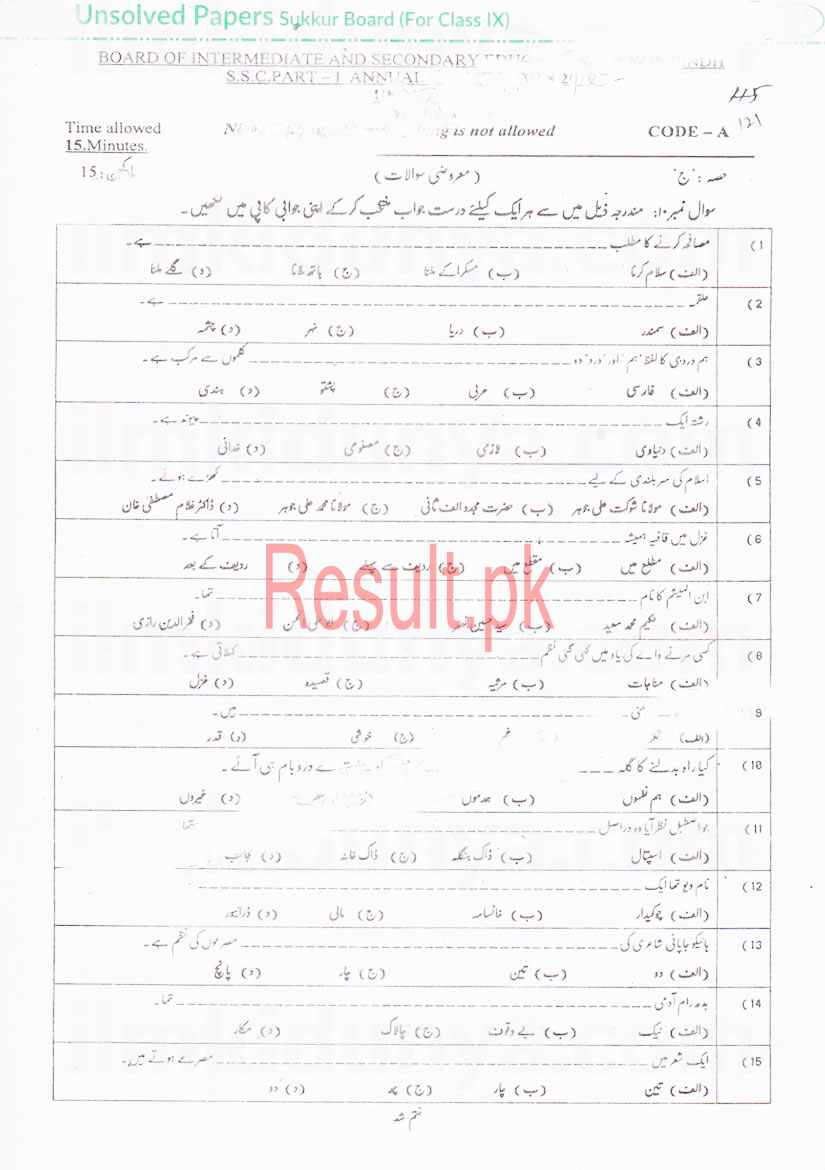 Unsolved Papers Sukkur Board (For Class IX)
BOARD OF INTERMEDIATE AND SECONDARY
S.S.C.PART – I ANNUAL
Time allowed is not allowed CODE – A 121
15.Minutes.
حصہ : "ج" (معروضی سوالات) 15:
سوال نمبر ۱۰: مندرجہ ذیل میں سے ہر ایک کیلئے درست جواب منتخب کر کے اپنی جوابی کاپی میں لکھیں۔
(1 مصافحہ کرنے کا مطلب ____________ ہے۔
(الف) سلام کرنا (ب) مسکرا کے ملنا (ج) ہاتھ ملانا (د) گلے ملنا
(2 ____________ ہے۔
(الف) سمندر (ب) دریا (ج) نہر (د) چشمہ
(3 ہم دردی کا لفظ "ہم" اور "درد" دو ____________ کلموں سے مرکب ہے۔
(الف) فارسی (ب) عربی (ج) پشتو (د) ہندی
(4 رشتہ ایک ____________ پیوند ہے۔
(الف) دنیاوی (ب) لازمی (ج) مصنوعی (د) خدائی
(5 اسلام کی سربلندی کے لیے ____________ کھڑے ہوئے۔
(الف) مولانا شوکت علی جوہر (ب) حضرت مجدد الف ثانی (ج) مولانا محمد علی جوہر (د) ڈاکٹر غلام مصطفیٰ خان
(6 غزل میں قافیہ ہمیشہ ____________ آتا ہے۔
(الف) مطلع میں (ب) مقطع میں (ج) ردیف سے پہلے (د) ردیف کے بعد
Result.pk
(7 ابن الہیثم کا نام ____________ تھا۔
(الف) حکیم محمد سعید (ب) (ج) (د) فخر الدین رازی
(8 کسی مرنے والے کی یاد میں لکھی گئی نظم ____________ کہلاتی ہے۔
(الف) مناجات (ب) مرثیہ (ج) قصیدہ (د) غزل
9 ____________ ہیں۔
(الف) (ب) غم (ج) خوشی (د) قدر
(10 کیا راہ بدلنے کا گلہ ____ در و بام ہی آئے۔
(الف) ہم نفسوں (ب) ہمدموں (د) غیروں
(11 جو اصطبل نظر آیا وہ دراصل ____________ تھا
(الف) اسپتال (ب) ڈاک بنگلہ (ج) ڈاک خانہ (د)
(12 نام دیو تھا ایک ____________
(الف) چوکیدار (ب) خانسامہ (ج) مالی (د) ڈرائیور
(13 ہائیکو جاپانی شاعری کی ____________ مصرعوں کی نظم ہے۔
(الف) دو (ب) تین (ج) چار (د) پانچ
(14 بدھ رام آدمی ____________ تھا۔
(الف) نیک (ب) بے وقوف (ج) چالاک (د) مکار
(15 ایک شعر میں ____________ مصرعے ہوتے ہیں۔
(الف) تین (ب) چار (ج) چھ (د) دو
ختم شد